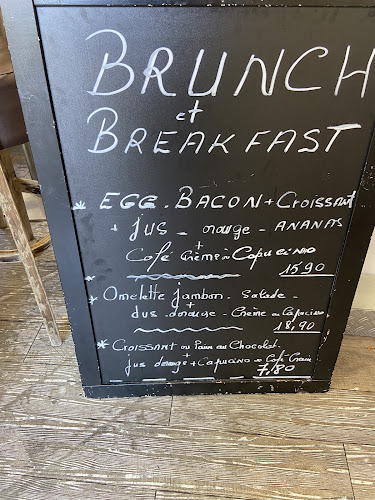 BRUNCH
et
BREAKFAST
* EGG. BACON + CROISSANT
+ jus - orange - ANANAS
+
Café Crème ou Capucino
15,90
* Omelette jambon - Salade -
+
dus. orange - Crème ou Capucino
18,90
* CROISSANT ou Pain au Chocolat.
+
jus orange + Capucino ou Café Crain
7,80